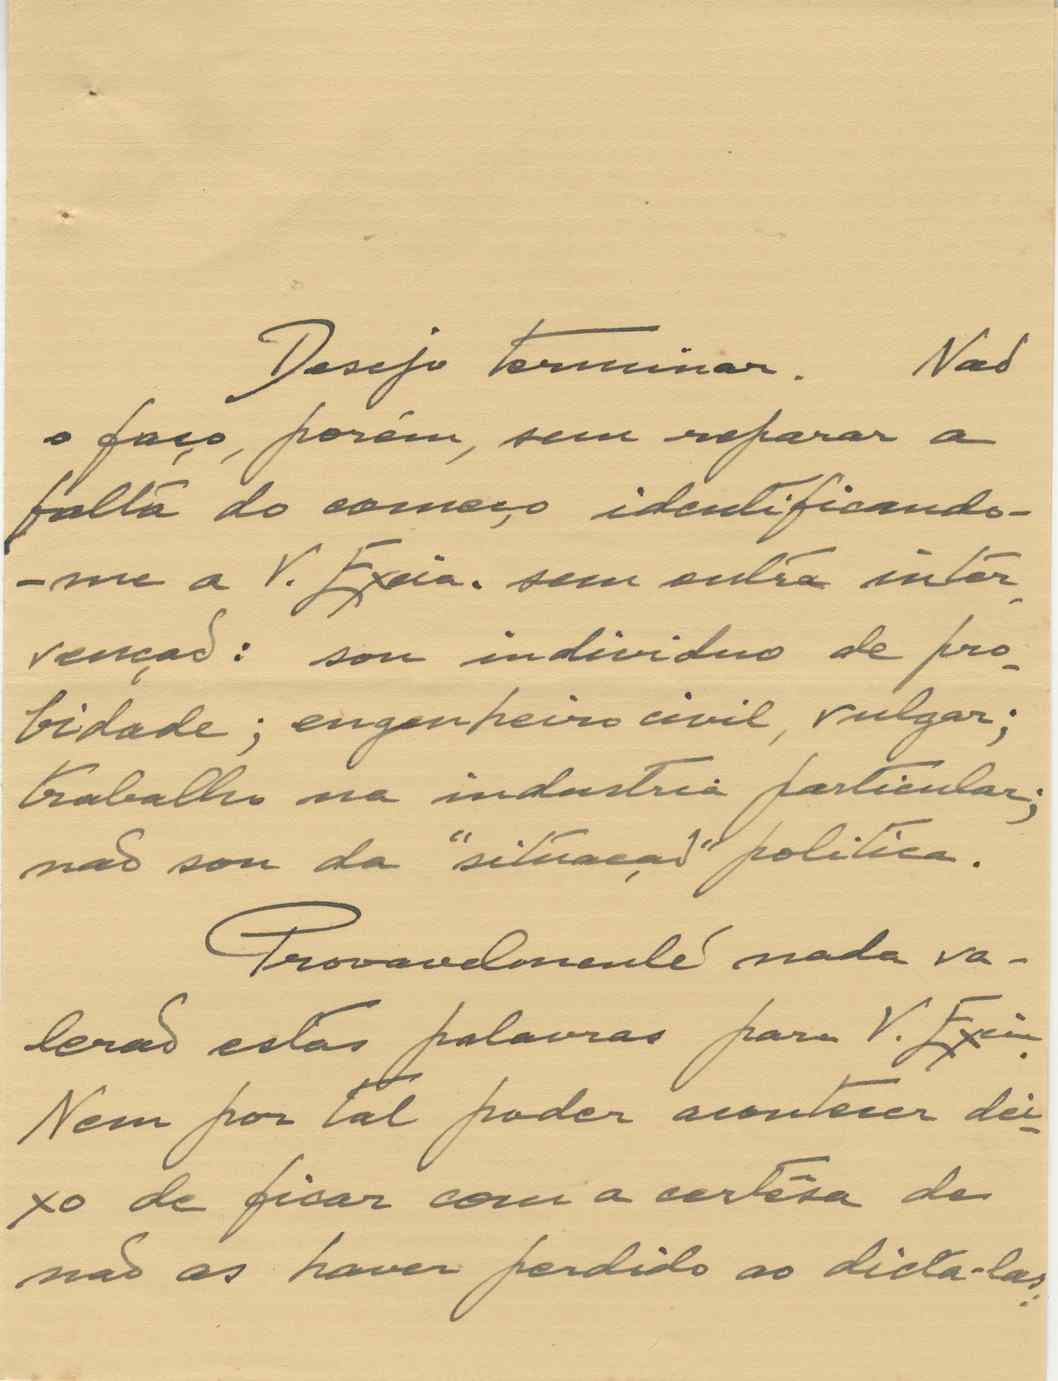 Desejo terminar. Não
o faço, porém, sem reparar a
falta do começo identificando-
-me a V. Excia. sem outra inter-
venção: sou individuo de pro-
bidade; engenheiro civil, vulgar;
trabalho na industria particular;
não sou da "situação" politica.
Provavelmente nada va-
lerão estas palavras para V. Excia.
Nem por tal poder acontecer dei-
xo de ficar com a certêsa de
não as haver perdido ao dicta-las.